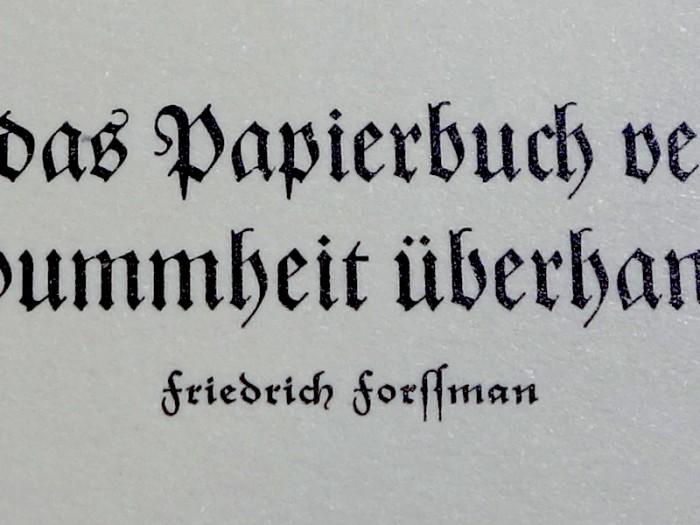 das Papierbuch ve
ummheit überhan
Friedrich Forſſman